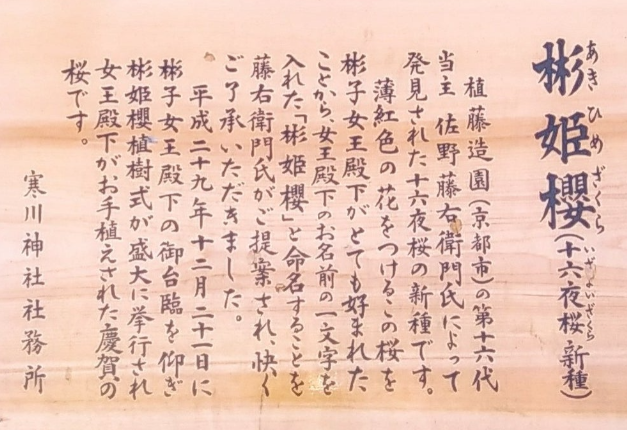 彬姫櫻(十六夜桜新種)
あきひめざくら
いざよいざくら
植藤造園(京都市)の第十六代
当主 佐野藤右衛門氏によって
発見された十六夜桜の新種です。
薄紅色の花をつけるこの桜を
彬子女王殿下がとても好まれた
ことから、女王殿下のお名前の一文字を
入れた、「彬姫櫻」と命名することを
藤右衛門氏がご提案され、快く
ご了承いただきました。
平成二十九年十二月二十一日に
彬子女王殿下の御台臨を仰ぎ
彬姫櫻植樹式が盛大に挙行され
女王殿下がお手植えされた慶賀の
桜です。
寒川神社社務所